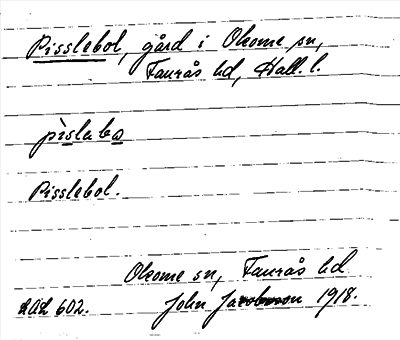 Pisslebol, gård i Okome sn,
Faurås hd, Hall. l.
pìslabo
Pisslebol.
Okome sn, Faurås hd
LAL 602. John Jacobsson 1918.